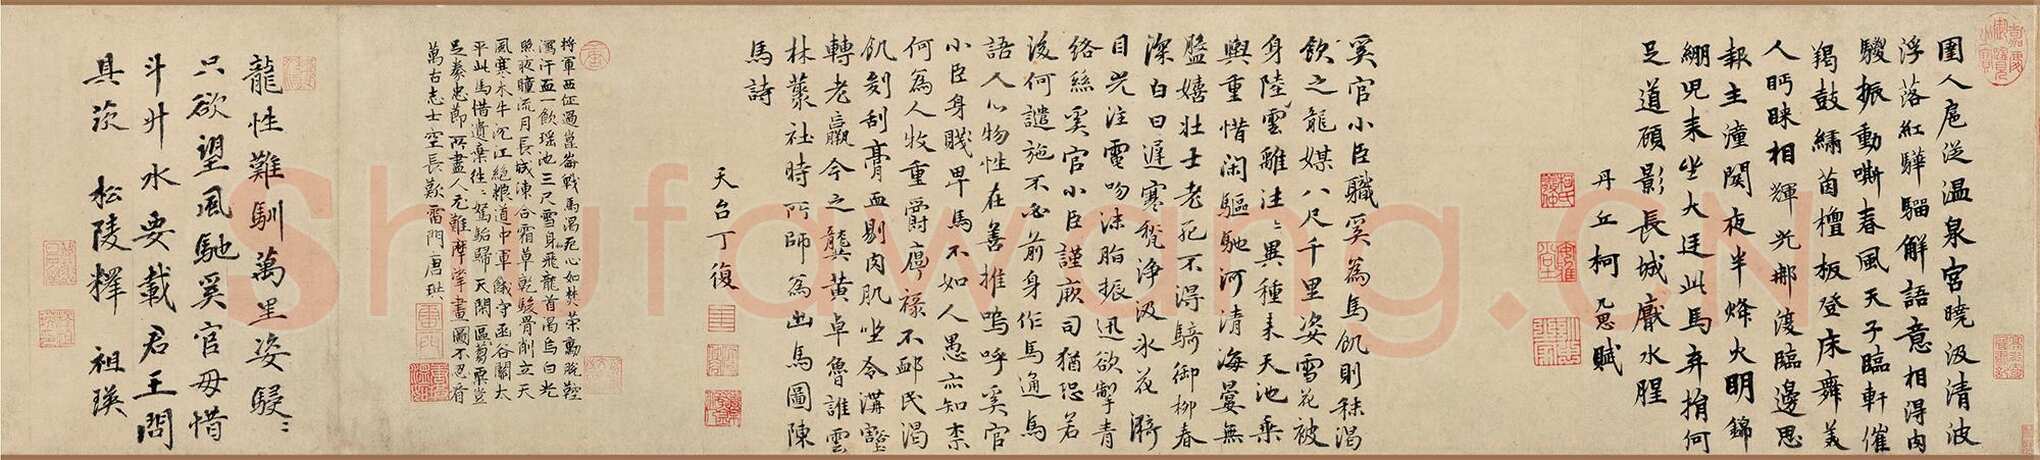 圉人扈從溫泉宮曉汲清波
浮落紅驊騮解語意相得肉
騣振動嘶春風天子臨軒催
羯鼓繡茵檀板登床舞美
人眄睞相輝光那渡臨邊思
報主潼關夜半烽火明錦
綳兒來坐大廷此馬棄捐何
足道顧影長城廄水腥
丹丘柯九思賦
奚官小臣職奚為馬飢則秣渴
飲之龍媒八尺千里姿雪花被
身陸雲離注〻異種來天池乘
輿重惜閑驅馳河清海晏無
盤嬉壯士老死不得騎御柳春
深白日遲寒瓷淨汲氷花漪
目光注電吻沫脂振迅欲掣青
絡絲奚官小臣謹厥司猶恐若
後何譴施不必前身作馬通馬
語人心物性在善推嗚呼奚官
小臣身賤卑馬不如人愚亦知柰
何為人牧重爵廩祿不邮民渴
飢刻刮膏血剔肉肌坐令溝壑
轉老羸今之龔黃卓魯誰雲
林藂社時所師為出馬圖陳
馬詩
天台丁復
將軍西征過崑崙戰馬渴死心如焚策勳脫鞚
瀉汗血一飲瑤池三尺雪身飛龍首渴烏白光
照夜瞳流月長城凍合霜草乾駿骨削立天
風寒木牛沉江絕粮道中軍餓守函谷關大
平此馬惜遺棄往〻駑駘歸天閑區芻粟豈
足豢忠節所盡人尤難摩挲畫圖不忍看
萬古志士空長歎雷門唐珙
龍性難馴萬里姿駸〻
只欲望風馳奚官毋惜
斗升水要載君王問
具茨 松陵釋 祖瑛
Shufawang.CN